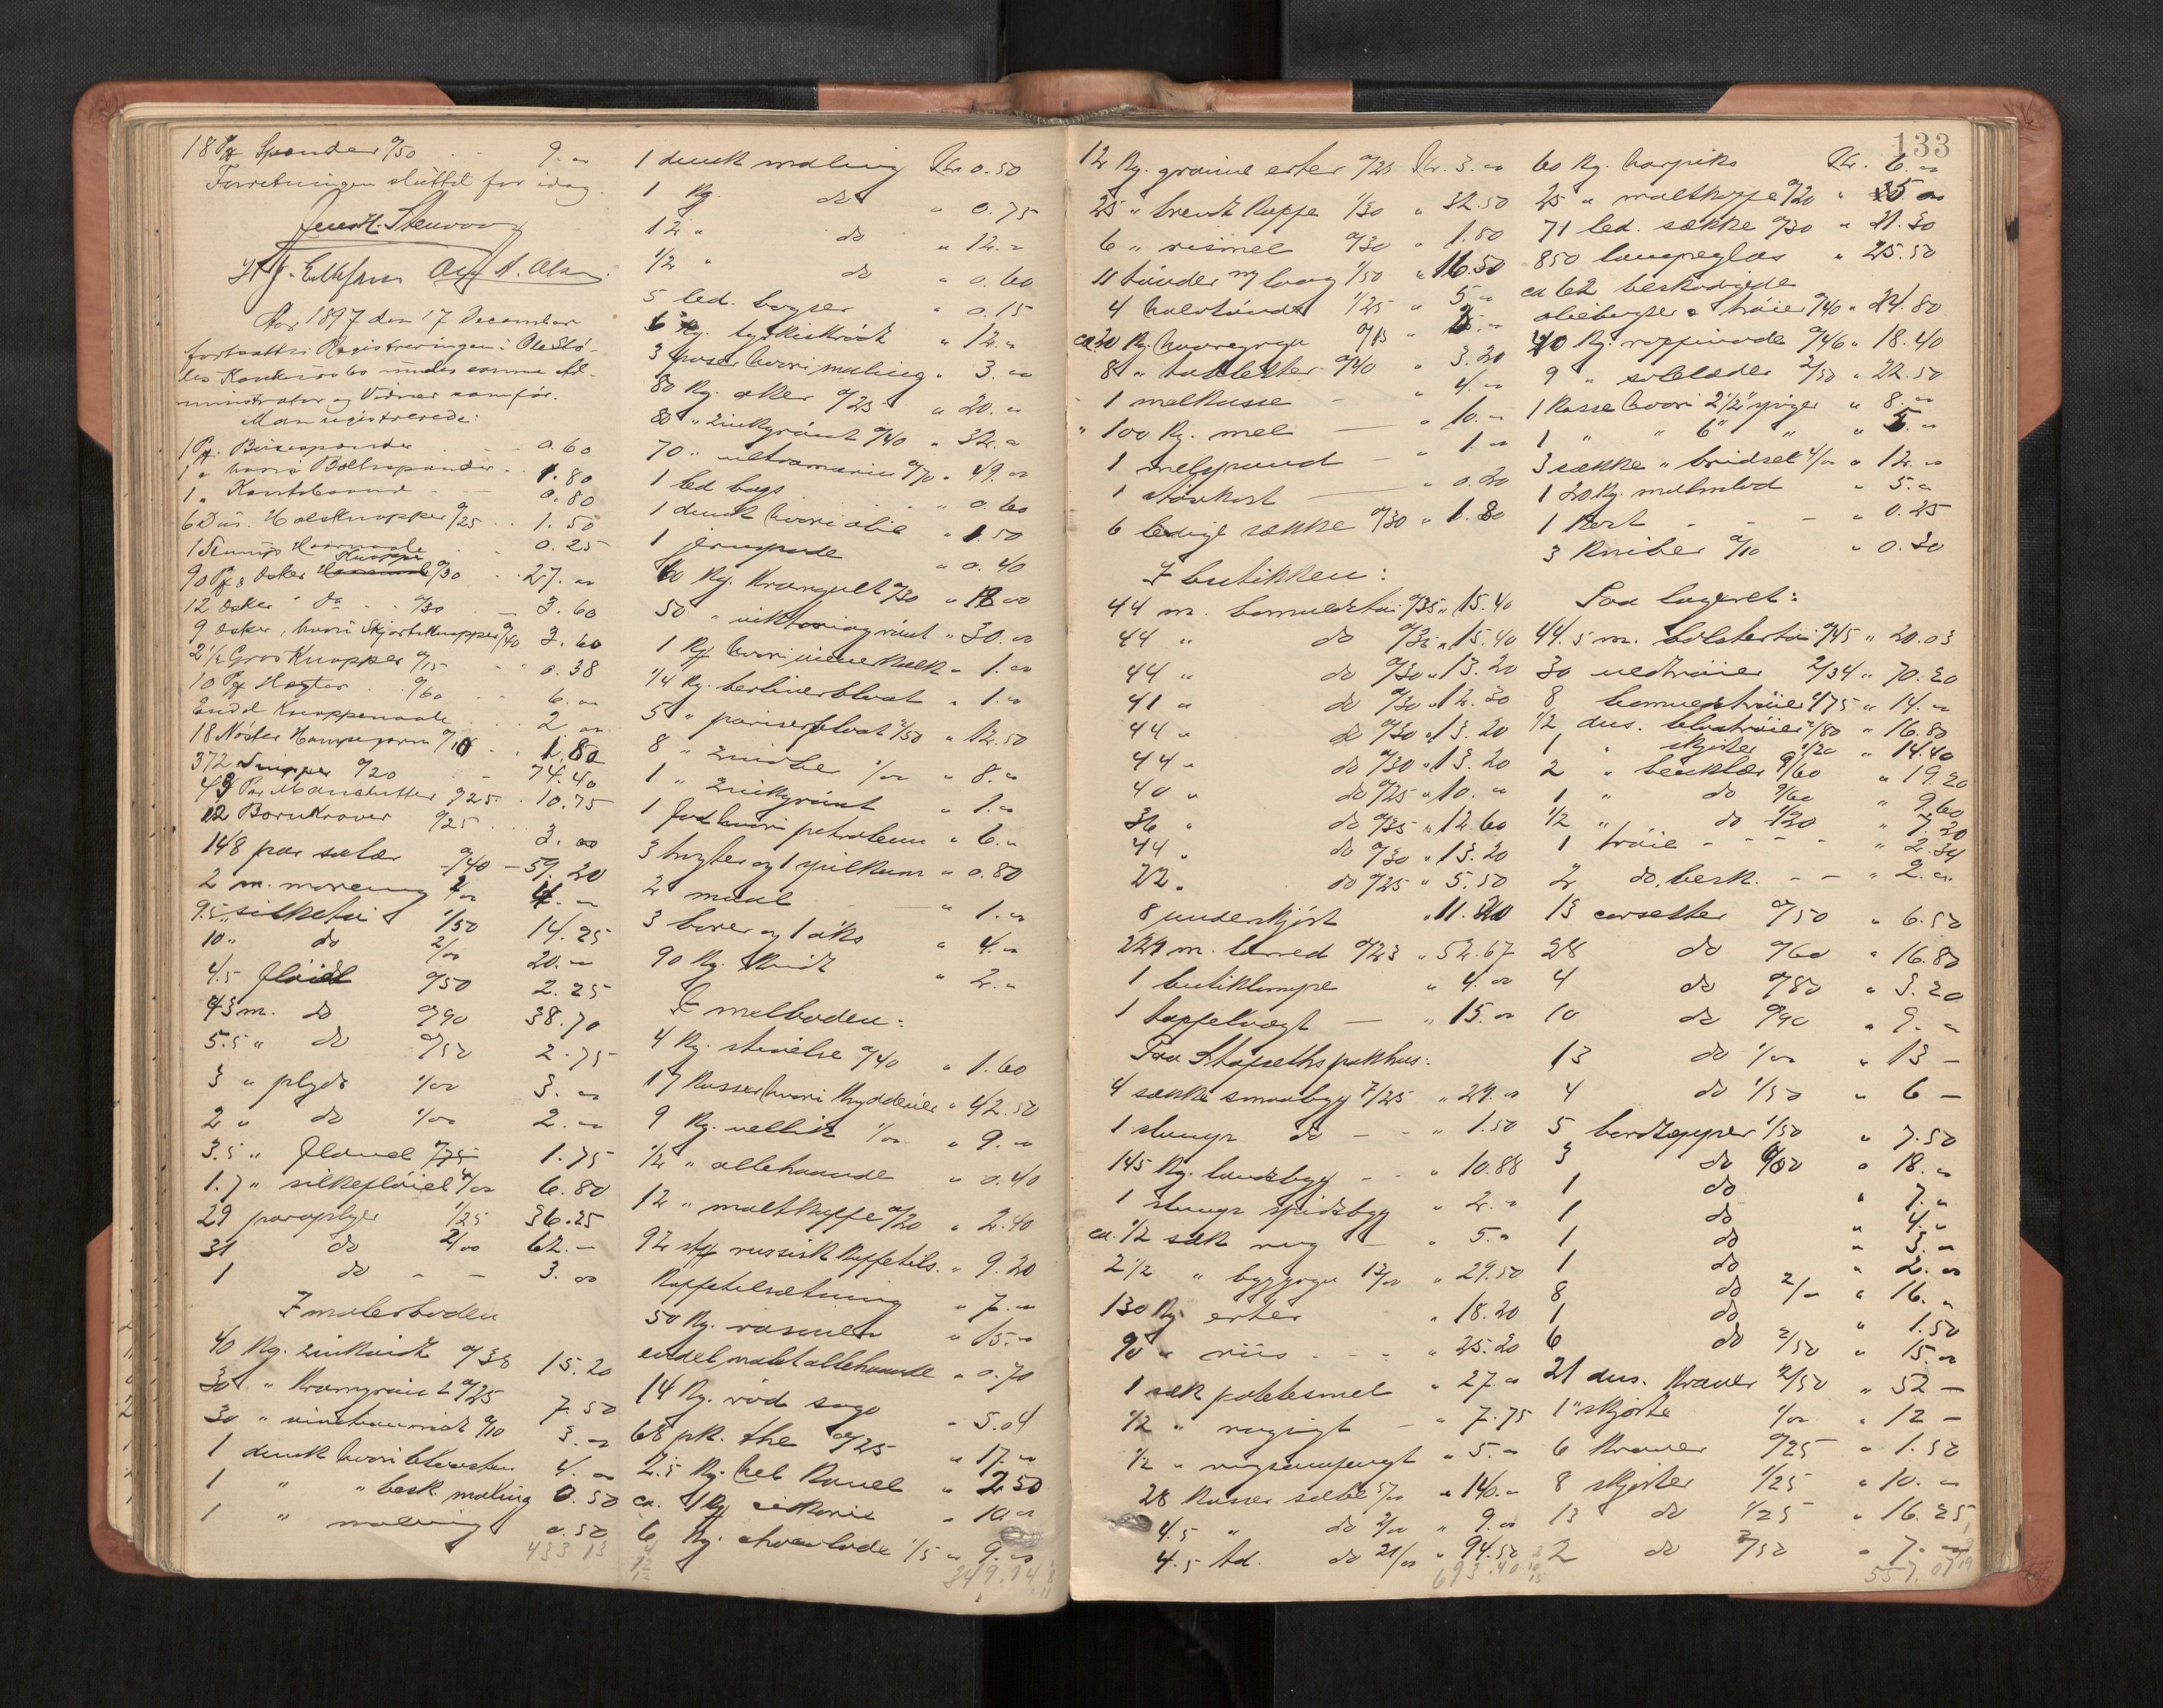 18 Pk Spender 0/50 9.
Forretningen sluttet for idag.
Aar 1897 den 17 December
fortsattes Registreringen i Ole
Konkursbo under samme Ad-
ministrator og Vidner som før.
Man registrerede:
1 Pk. 0.60
1 " hvori 1.80
1 " Kantebaand 0.80
6 Dus. Halsknapper 0/25 1.50
0.25
90 Pk Æsker Knapper 0/30 27.
12 Æsker " Do 0/30 3.60
9 Æsker, hvori Skjorteknapper 0/40 3.60
2 1/2 Gros Knapper 0/15 0.38
10 Pk Hægter 0/60 6.
Endel Knappenaale 2
18 Nøster Hampegarn 0/10 1.80
372 0/20 74.40
43 Par Mansjetter 0/25 10.75
12 Barnkraver 0/25 3.00
148 par saaler 0/40 59.20
2 m. 2/00 4.
9.5 " silketøi 1/50 14.25
10 " do 2/00 20.
4.5 fløiel 0/50 2.25
43 m. do 0/90 38.70
5.5 " do 0/50 2.75
3 " plyds 1/00 3.
2 " do 1/00 2.
3.5 " flanel 1.75
1.7 " silkefløiel 4/00 6.80
29 paraplyer 1/25 36.25
31 do 2/00 62.
1 do 3.00
I malerboden
40 Kg. zinkhvidt 0/38 15.20
30 " Kromgrønt 0/25 7.50
30 " 0/10 3.
1 dunk hvori 4.
1 " " besk. maling 0.50
1 " maling 0.50
433 13
1 dunk maling Kr. 0.50
1 Kg. do " 0.75
12 " do " 12.
1/2 " do " 0.60
5 led. bøgser " 0.15
6 Kg. " 12.
3 poser hvori maling " 3.
80 Kg. oker 0/25 " 20.
80 " zinkgrønt 0/40 " 32.
70 " ultramarin 0/70 " 49.
1 led bøgs " 0.60
1 dunk hvori olie " 1.50
1 jernspade " 0.40
60 Kg. Kromgult 0/30 " 18.00
50 " viktoriagrønt " 30.
1 Kg hvori wienerkalk " 1.
1/4 Kg. berlinerblaat " 1.
5 " pariserblaat 2/50 " 12.50
8 " 1/00 " 8.
1 " Zinkgrønt " 1.
1 fad hvori petroleum " 6.
3 lygter og 1 spilkum " 0.80
2 maal " 1.
3 borer og 1 øks " 4.
90 Kg. Kridt " 2.
I melboden:
4 Kg. stivelse 0/40 " 1.60
17 Kasser hvori Krydderier " 42.50
9 Kg. nellik 1/00 " 9.
1/2 " allehaande " 0.40
12 " maltkaffe 0/20 " 2.40
92 stk russisk Kaffetils. " 9.20
Kaffetilsætning " 7.
50 Kg. rosiner " 15.
endel malt allehaande " 0.70
14 Kg. rød sago " 5.04
68 pk. the 0/25 " 17.
2.5 Kg. hel Kanel " 2.50
ca. Kg sikkori " 10.
6 Kg. chocolade 1/5 " 9.
349.14
133
12 Kg. grønne erter 0/25 Kr. 3.
25 " brendt Kaffe 1/30 " 32.50
6 " rismel 0/30 " 1.80
11 tønder m/ laag 1/50 " 16.50
4 halvtønder 1/25 " 5
ca 20 Kg. havregryn
8 " 0/40 " 3.20
1 melkasse " 4.
" 100 Kg. mel " 10.
1 melspand " 1.
1 støvkost " 0.20
6 ledige sække 0/30 " 1.80
I butikken:
44 m. bomuldstøi 0/35 " 15.40
44 " do 0/35 " 15.40
44 " do 0/30 " 13.20
41 " do 0/30 " 12.30
44 " do 0/30 " 13.20
44 " do 0/30 " 13.20
40 " do 0/25 " 10.
36 " do 0/35 " 12.60
44 " do 0/30 " 13.20
22 " do 0/25 " 5.50
8 underskjørt " 11.20
229 m. lærred 0/23 " 52.67
1 butiklampe " 4.
1 taffelvægt " 15.
Paa Stafseths pakhus:
4 sække smaabyg 7/25 " 29.
1 slump do " 1.50
145 Kg. landbyg " 10.88
1 slump " 2.
ca. 1/2 sæk rug " 5.
2 1/2 " byggryn " 29.50
130 Kg. erter " 18.20
90 " riis " 25.20
1 sæk potetesmel " 27.
1/2 " rugsigt " 7.75
1/2 " " 5.
28 Kasser sæbe 5/00 " 140.
4.5 " do 2/00 " 9.
4.5 td. do 21/00 " 94.50
693.40
60 Kg. harpiks Kr. 6.
25 " maltkaffe 0/20 " 5
71 led. sække 0/30 " 21.30
850 lampeglas " 25.50
ca 62 beskadigede
oliebugser & trøier 0/40 " 24.80
40 Kg. 0/46 " 18.40
9 " saalelæder 2/50 " 22.50
1 Kasse hvori 2 1/2" spiger " 8.
1 " " 6" " " 5.
3 sække " 4/00 " 12.
1 20 Kg. " 5.
1 Kost " 0.25
3 Kniber 0/10 " 0.30
Paa lageret:
44.5 m. bolstertøi 0/45 " 20.03
30 uldtrøier 2/34 " 70.20
8 bomuldstrøier 1/75 " 14.
1/2 dus. 2/80 " 16.80
1 " skjorter 1/20 " 14.40
2 " benklær 0/60 " 19.20
1 " do 0/60 " 9.60
1/2 " do 1/20 " 7.20
1 trøie " 2.34
2 do, besk. " 2.
13 corsetter 0/50 " 6.50
28 do 0/60 " 16.80
4 do 0/80 " 3.20
10 do 0/90 " 9.
13 do 1/00 " 13
4 do 1/50 " 6
5 bordtepper 1/50 " 7.50
3 do 6/00 " 18.
1 do " 7.
1 do " 4.
1 do " 3.
1 do " 2.
8 do 2/ " 16.
1 do " 1.50
6 do 2/50 " 15.
21 dus. Kraver 2/50 " 52
1 " skjorte 1/00 " 12
6 Kraver 0/25 " 1.50
8 skjorter 1/25 " 10.
13 do 1/25 " 16.25
2 do " 7.
557.07